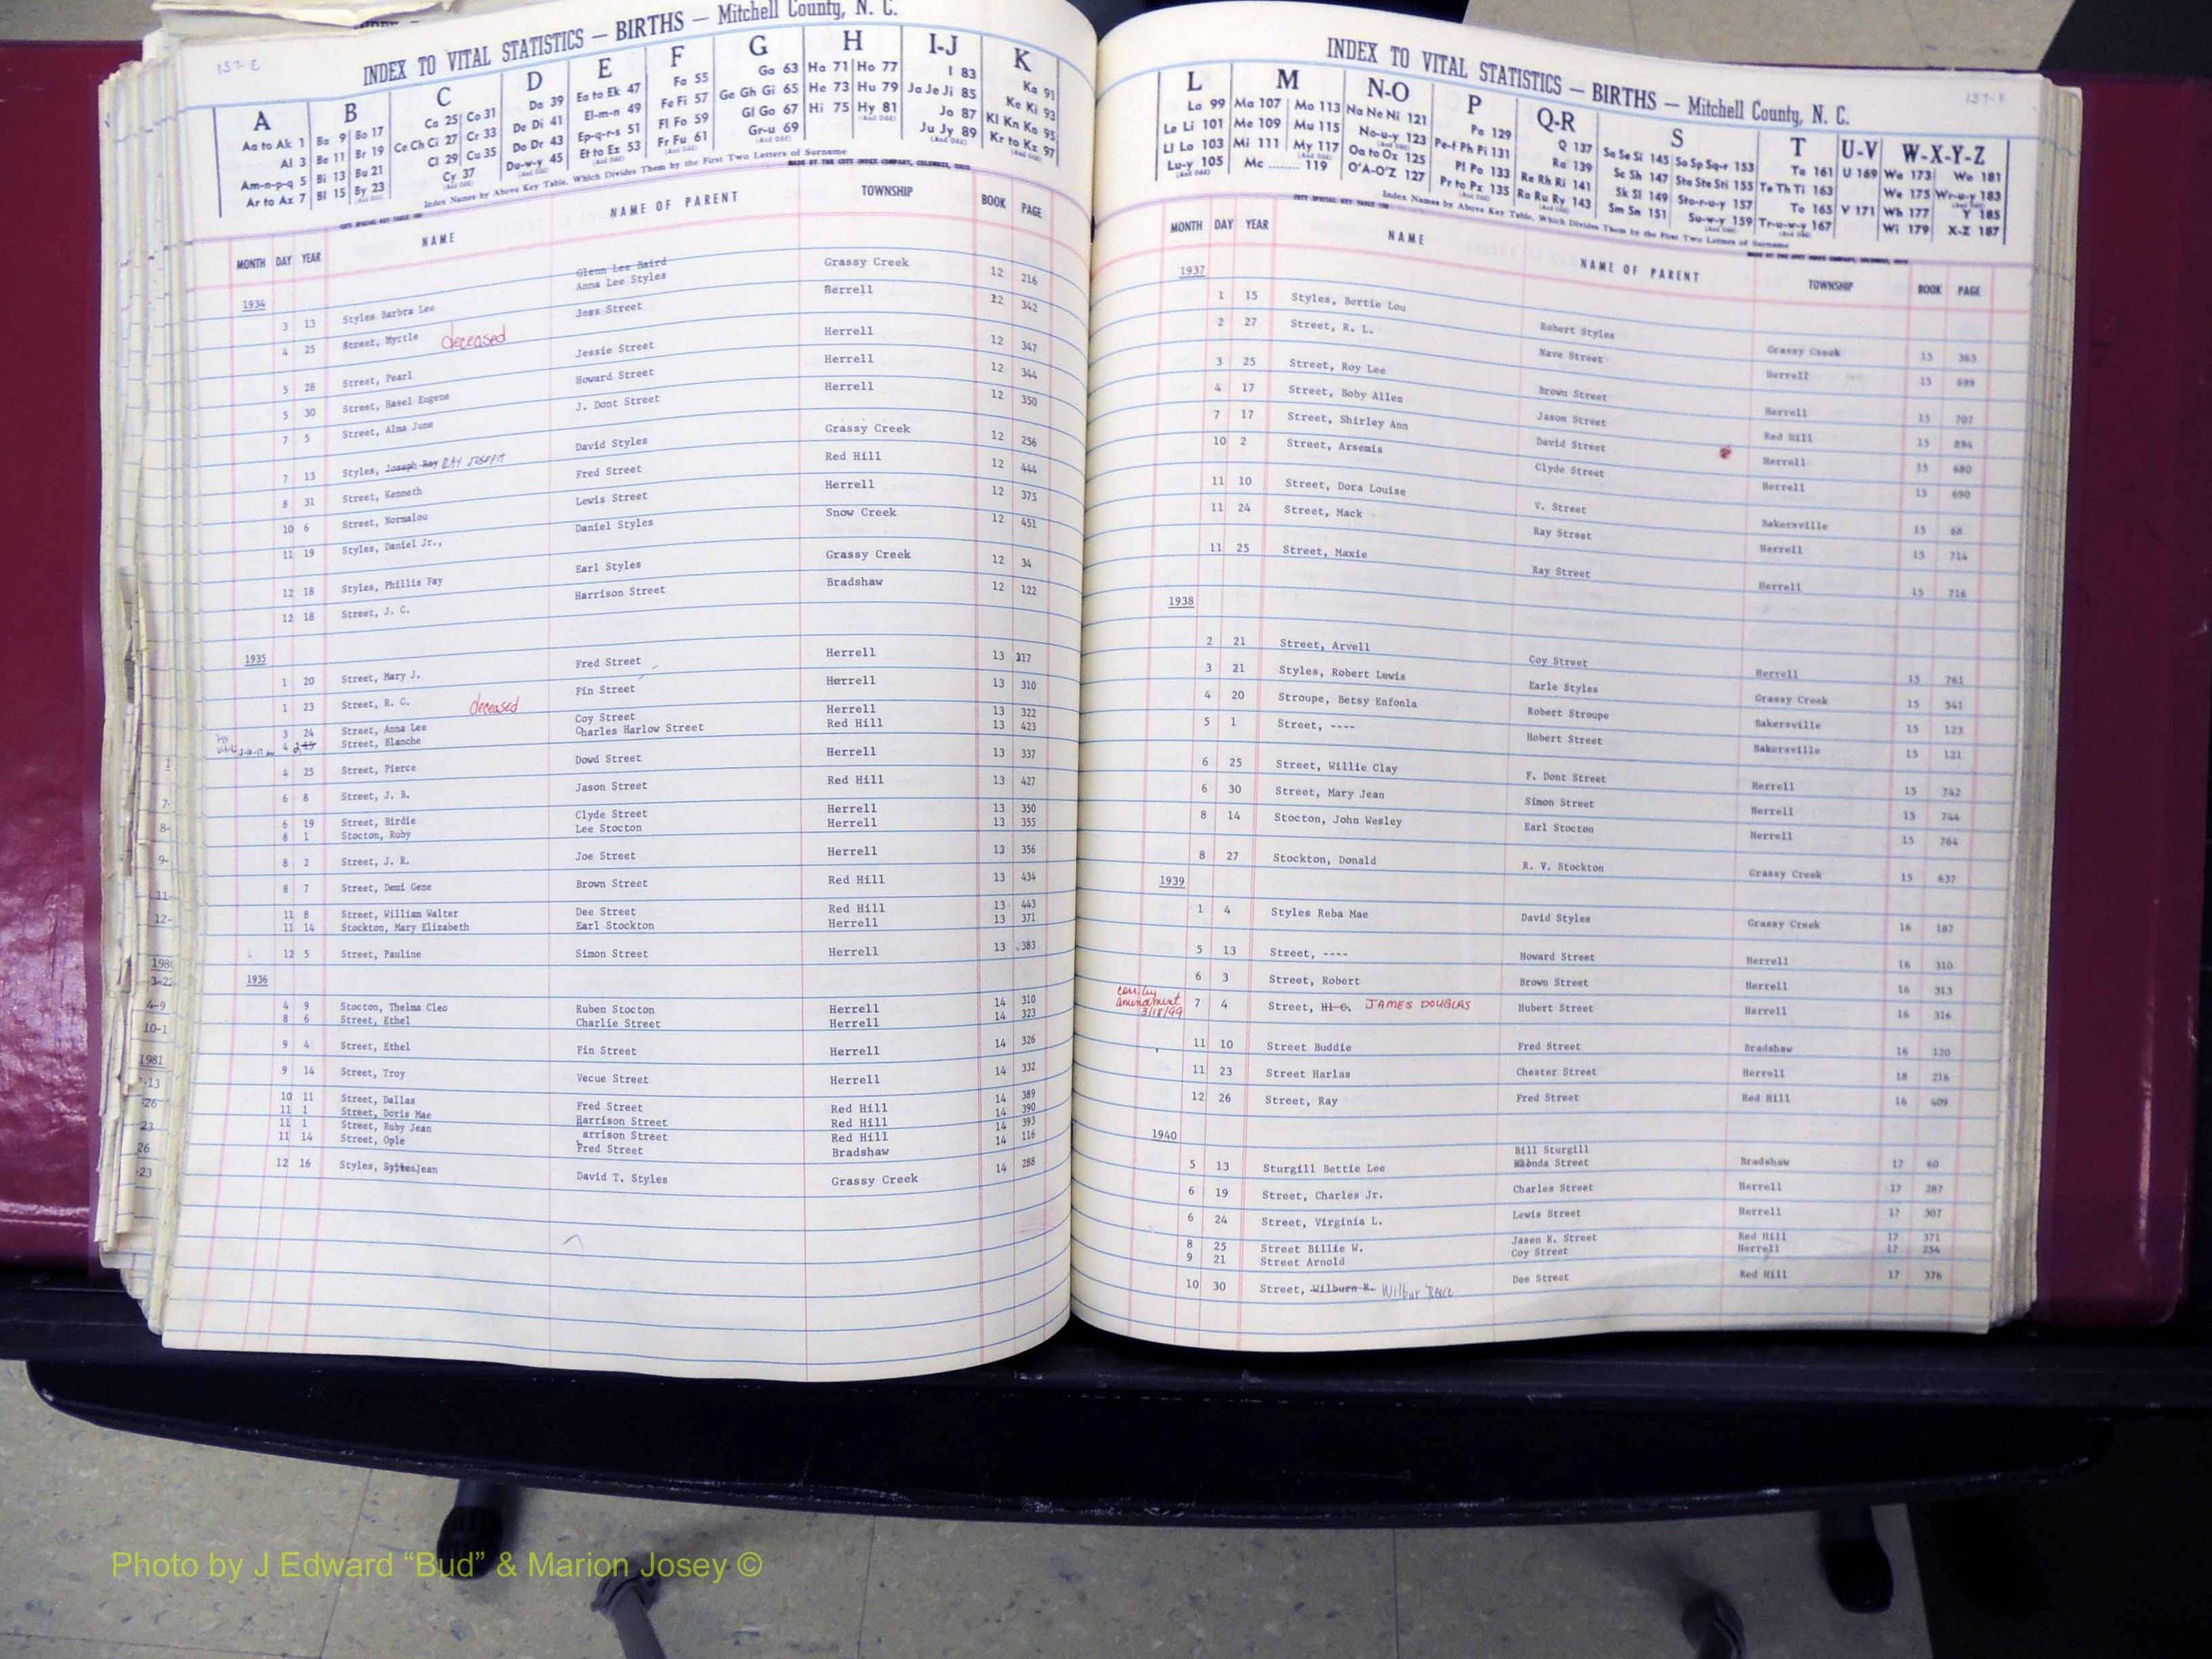 157-E
INDEX TO VITAL STATISTICS — BIRTHS — Mitchell County, N. C.
A B C D E F G H I-J K
Aa to Ak 1 Ba 9 Bo 17 Ca 25 Co 31 Da 39 Ea to Ek 47 Fa 55 Ga 63 Ha 71 Ho 77 I 83 Ka 91
Al 3 Be 11 Br 19 Ce Ch Ci 27 Cr 33 De Di 41 El-m-n 49 Fe Fi 57 Ge Gh Gi 65 He 73 Hu 79 Ja Je Ji 85 Ke Ki 93
Am-n-p-q 5 Bi 13 Bu 21 Cl 29 Cu 35 Do Dr 43 Ep-q-r-s 51 Fl Fo 59 Gl Go 67 Hi 75 Hy 81 Jo 87 Kl Kn Ko 95
Ar to Az 7 Bl 15 By 23 Cy 37 Du-w-y 45 Et to Ez 53 Fr Fu 61 Gr-u 69 Ju Jy 89 Kr to Kz 97
Index Names by Above Key Table, Which Divides Them by the First Two Letters of Surname
MONTH DAY YEAR NAME NAME OF PARENT TOWNSHIP BOOK PAGE
1934
Glenn Lee Baird
3 13 Styles Barbra Lee Anna Lee Styles Grassy Creek 12 216
4 25 Street, Myrtle deceased Jess Street Herrell 12 342
5 28 Street, Pearl Jessie Street Herrell 12 347
5 30 Street, Hasel Eugene Howard Street Herrell 12 344
7 5 Street, Alma June J. Dont Street Herrell 12 350
7 13 Styles, Joseph Ray RAY JOSEPH David Styles Grassy Creek 12 256
8 31 Street, Kenneth Fred Street Red Hill 12 444
10 6 Street, Normalou Lewis Street Herrell 12 375
11 19 Styles, Daniel Jr., Daniel Styles Snow Creek 12 451
12 18 Styles, Phillis Fay Earl Styles Grassy Creek 12 34
12 18 Street, J. C. Harrison Street Bradshaw 12 122
1935
1 20 Street, Mary J. Fred Street Herrell 13 317
1 23 Street, R. C. deceased Fin Street Herrell 13 310
3 24 Street, Anna Lee Coy Street Herrell 13 322
4 Street, Blanche Charles Harlow Street Red Hill 13 423
4 25 Street, Pierce Dowd Street Herrell 13 337
6 8 Street, J. B. Jason Street Red Hill 13 427
6 19 Street, Birdie Clyde Street Herrell 13 350
8 1 Stocton, Ruby Lee Stocton Herrell 13 355
8 2 Street, J. R. Joe Street Herrell 13 356
8 7 Street, Demi Gene Brown Street Red Hill 13 434
11 8 Street, William Walter Dee Street Red Hill 13 443
11 14 Stockton, Mary Elizabeth Earl Stockton Herrell 13 371
12 5 Street, Pauline Simon Street Herrell 13 383
1936
4 9 Stocton, Thelma Cleo Ruben Stocton Herrell 14 310
8 6 Street, Ethel Charlie Street Herrell 14 323
9 4 Street, Ethel Fin Street Herrell 14 326
9 14 Street, Troy Vecue Street Herrell 14 332
10 11 Street, Dallas Fred Street Red Hill 14 389
11 1 Street, Doris Mae Harrison Street Red Hill 14 390
11 1 Street, Ruby Jean arrison Street Red Hill 14 393
11 14 Street, Ople Fred Street Bradshaw 14 116
12 16 Styles, Jean David T. Styles Grassy Creek 14 288
157-F
INDEX TO VITAL STATISTICS — BIRTHS — Mitchell County, N. C.
L M N-O P Q-R S T U-V W-X-Y-Z
La 99 Ma 107 Mo 113 Na Ne Ni 121 Pa 129 Q 137 Sa Se Si 145 So Sp Sq-r 153 Ta 161 U 169 Wa 173 Wo 181
Le Li 101 Me 109 Mu 115 No-u-y 123 Pe-f Ph Pi 131 Ra 139 Sc Sh 147 Sta Ste Sti 155 Te Th Ti 163 We 175 Wr-u-y 183
Ll Lo 103 Mi 111 My 117 Oa to Oz 125 Pl Po 133 Re Rh Ri 141 Sk Sl 149 Sto-r-u-y 157 To 165 V 171 Wh 177 Y 185
Lu-y 105 Mc 119 O'A-O'Z 127 Pr to Px 135 Ro Ru Ry 143 Sm Sn 151 Su-w-y 159 Tr-u-w-y 167 Wi 179 X-Z 187
Index Names by Above Key Table, Which Divides Them by the First Two Letters of Surname
MONTH DAY YEAR NAME NAME OF PARENT TOWNSHIP BOOK PAGE
1937
1 15 Styles, Bertie Lou Robert Styles Grassy Creek 15 363
2 27 Street, R. L. Nave Street Herrell 15 699
3 25 Street, Roy Lee Brown Street Herrell 15 707
4 17 Street, Boby Allen Jason Street Red Hill 15 894
7 17 Street, Shirley Ann David Street Herrell 15 680
10 2 Street, Arsemis Clyde Street Herrell 15 690
11 10 Street, Dora Louise V. Street Bakersville 15 68
11 24 Street, Mack Ray Street Herrell 15 714
11 25 Street, Maxie Ray Street Herrell 15 716
1938
2 21 Street, Arvell Coy Street Herrell 15 761
3 21 Styles, Robert Lewis Earle Styles Grassy Creek 15 541
4 20 Stroupe, Betsy Enfonla Robert Stroupe Bakersville 15 123
5 1 Street, ---- Hobert Street Bakersville 15 121
6 25 Street, Willie Clay F. Dont Street Herrell 15 742
6 30 Street, Mary Jean Simon Street Herrell 15 744
8 14 Stocton, John Wesley Earl Stocton Herrell 15 764
8 27 Stockton, Donald R. V. Stockton Grassy Creek 15 637
1939
1 4 Styles Reba Mae David Styles Grassy Creek 16 187
5 13 Street, ---- Howard Street Herrell 16 310
6 3 Street, Robert Brown Street Herrell 16 313
corr. by amendment 3/18/99 7 4 Street, H. C. JAMES DOUGLAS Hubert Street Herrell 16 316
11 10 Street Buddie Fred Street Bradshaw 16 120
11 23 Street Harlas Chester Street Herrell 18 216
12 26 Street, Ray Fred Street Red Hill 16 409
1940
Bill Sturgill
5 13 Sturgill Bettie Lee Rhonda Street Bradshaw 17 60
6 19 Street, Charles Jr. Charles Street Herrell 17 287
6 24 Street, Virginia L. Lewis Street Herrell 17 307
8 25 Street Billie W. Jasen R. Street Red Hill 17 371
9 21 Street Arnold Coy Street Herrell 17 254
10 30 Street, Wilburn R. Wilbur Reece Dee Street Red Hill 17 376
Photo by J Edward “Bud” & Marion Josey ©